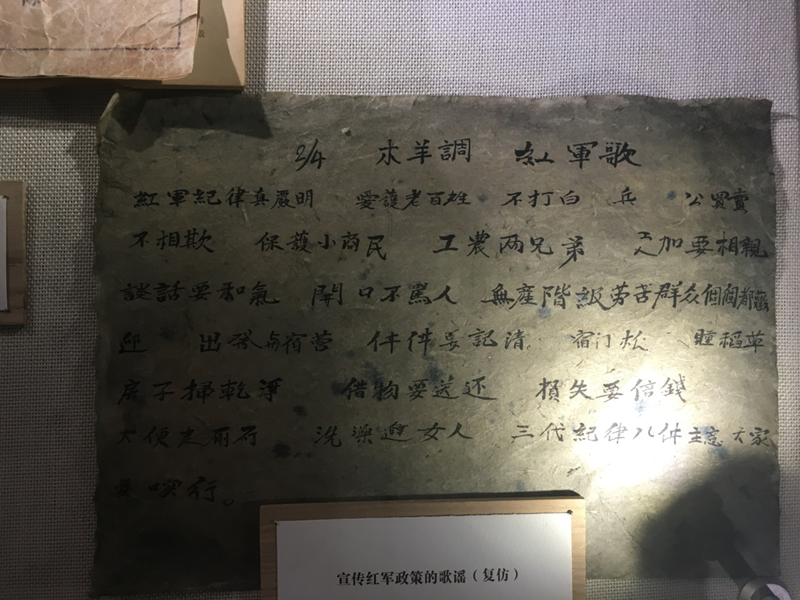 2/4 木羊調 紅軍歌
紅軍紀律真嚴明 愛護老百姓 不打白 兵 公買賣
不相欺 保護小商民 工農两兄弟 加要相親
談話要和氣 開口不罵人 無產階級劳苦群众個個都
迎 出發与宿营 件件要記清 宿门板 睡稻草
房子掃乾淨 借物要送还 損失要倍錢
大便走 洗澡避女人 三代紀律八件主意 大家
要 行。
宣传红军政策的歌谣（复仿）